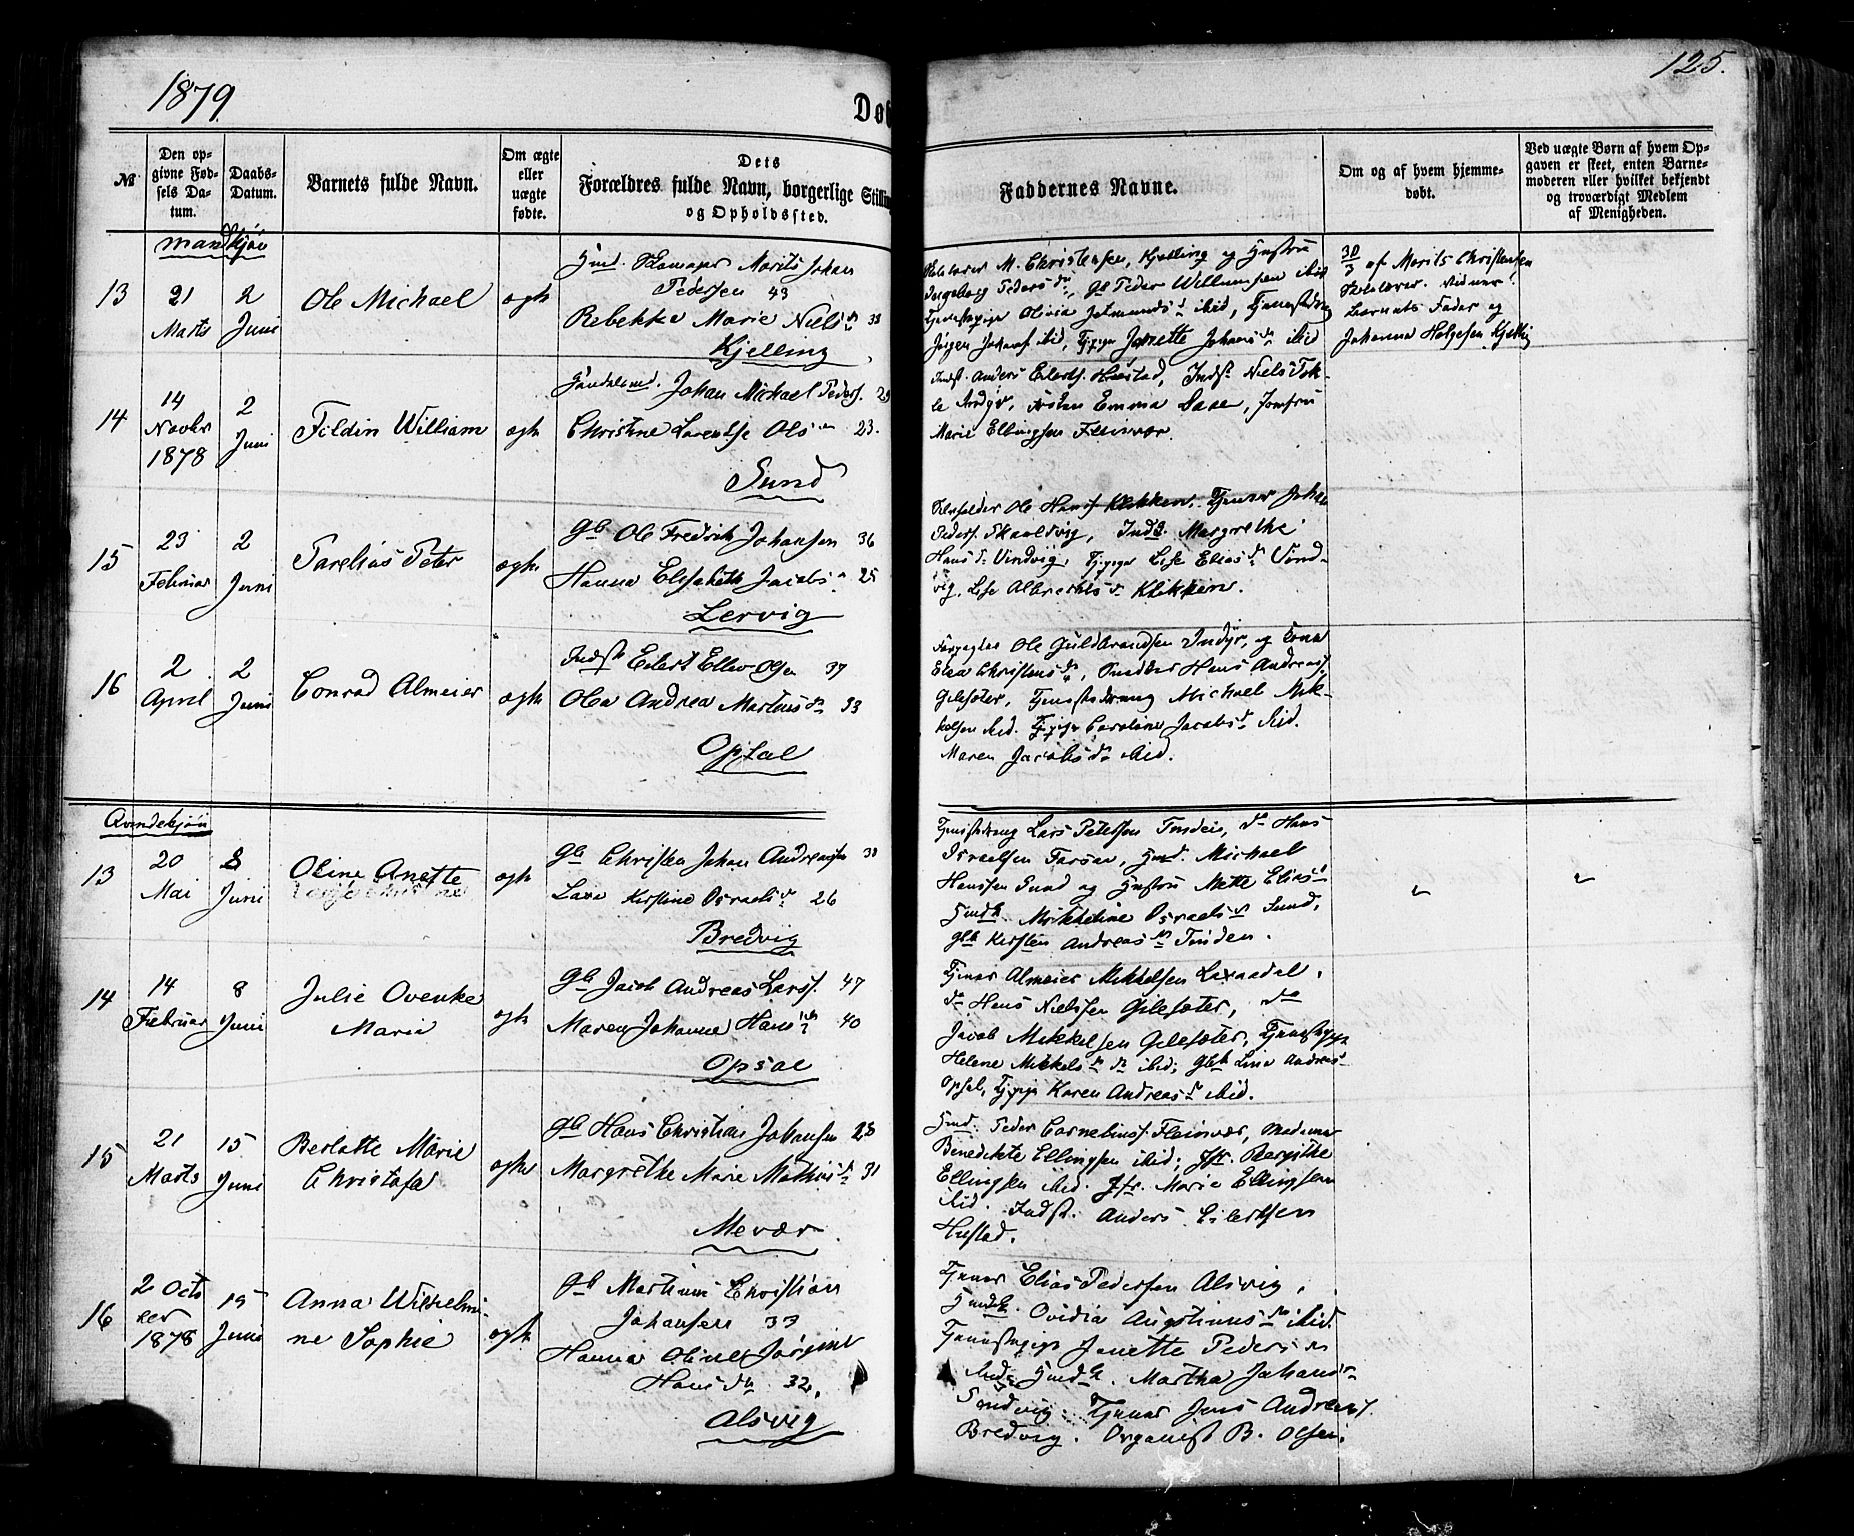 1879.
125.
№
Den op-
givne Fød-
sels Da-
tum.
Daabs-
Datum.
Barnets fulde Navn.
Om ægte
eller
uægte
fødte.
Dets
Forældres fulde Navn, borgerlige
og Opholdssted.
Faddernes Navne.
Om og af hvem hjemme-
døbt.
Ved uægte Børn af hvem Op-
gaven er skeet, enten Barne-
moderen eller hvilket bekjendt
og troværdigt Medlem
af Menigheden.
Mandkjøn
13
21
Marts
2
Juni
Ole Michael
ægte
Morits Johan
Pedersen 43
Rebekka Marie Niels dr 38
Kjelling
M. Christensen, Kjelling og Hustru
Ingeborg Peders dr, Gb Peder Willumsen ibid
Olivia ibid,
Jørgen ibid, Tj.pige Janette Johans dr ibid
30/3 af Morits Christensen
Vidner:
Barnets Fader og
Johanna Helgesen Kjelling
14
14
Novbr
1878
2
Juni
Fildin William
ægte
Johan Michael Peders. 29
Christine Lorentse Ols dr 23.
Sund
Indst. Anders Eilerts. Hustad, Indst. Niels
Emma Jomfru
Marie Ellingsen Fleinvær.
15
23
Februar
2
Juni
Parelius Peter
ægte
Gb Ole Fredrik Johansen 36
Hanna Elisabeth Jacobs dr 25
Lervig
Ole Hans. Klikken, Tjener Johan
Peders. Inds. Margrethe
Hans dr Vindvig, Tj.pige Lise Elias dr Vind-
vig, Lise Albrechts dr Klikken.
16
2
April
2
Juni
Conrad Almeier
ægte
Indst Eilert Ellev Olsen 37
Ole Andrea Martinus dr 33
Opsal
Forpagter Ole Guldbrandsen Indyr, og Kone
Elen Christens dr, Hans Andreas.
Gilesæter, Tjenestedreng Michael Mik-
kelsen ibid. Tj.pige Caroline Jacobs dr ibid.
Maren Jacobs dr ibid.
Qvindekjøn
13
20
Mai
8
Juni
Oline Anette
ægte
Gb Christen Johan Andreassen 38
Lava Kirstine Israels dr 26
Bredvig
Tjenestedreng Lars Petersen Finden, do Hans
Israelsen Gmd. Michael
Hanssen Sund og Hustru Mette Elias dr
Gmdk. Mikkeline Israels dr Sund,
Gbk Kirsten Andreas dr Finden.
14
14
Februar
8
Juni
Julie Ovenke
Maria
ægte
Gb Jacob Andreas Larss. 47
Maren Johanne Hans dr 40
Opsal
Tjener Almeier Mikkelsen
do Hans Nielsen Gilesæter, do
Jacob Mikkelsen Gilesæter, Tjenestepige
Helene Mikkels dr do ibid; Gbk Lina Andreas
Opsal, Tj.pige Karen Andreas dr ibid.
15
21
Marts
15
Juni
Berlotte Marie
Christofa
ægte
Gb Hans Christian Johansen 28
Margrethe Marie Mathias dr 31
Mevær
Gmd. Peder Cornelius. Fleinvær, Madame
Benedikte Ellingsen ibid; Jfr. Bergithe
Ellingsen ibid. Jfr. Marie Ellingsen
ibid. Indst. Anders Eilertsen
Hustad.
16
2 Octo
ber
1878
15
Juni
Anna Wilhelmi-
ne Sophie
ægte
Gb Martinus Christian
Johansen 33
Hanna Oline Jørgine
Hans dr 32,
Alsvig
Tjener Elias Pedersen Alsvig,
Gmdk. Ovidia Augstinus dr ibid.
Tjenestepige Janette Peders dr
ibid, Gmdk. Martha Johans dr
Tjener Jens Andreas.
Bredvig. Organist B. Olsen.